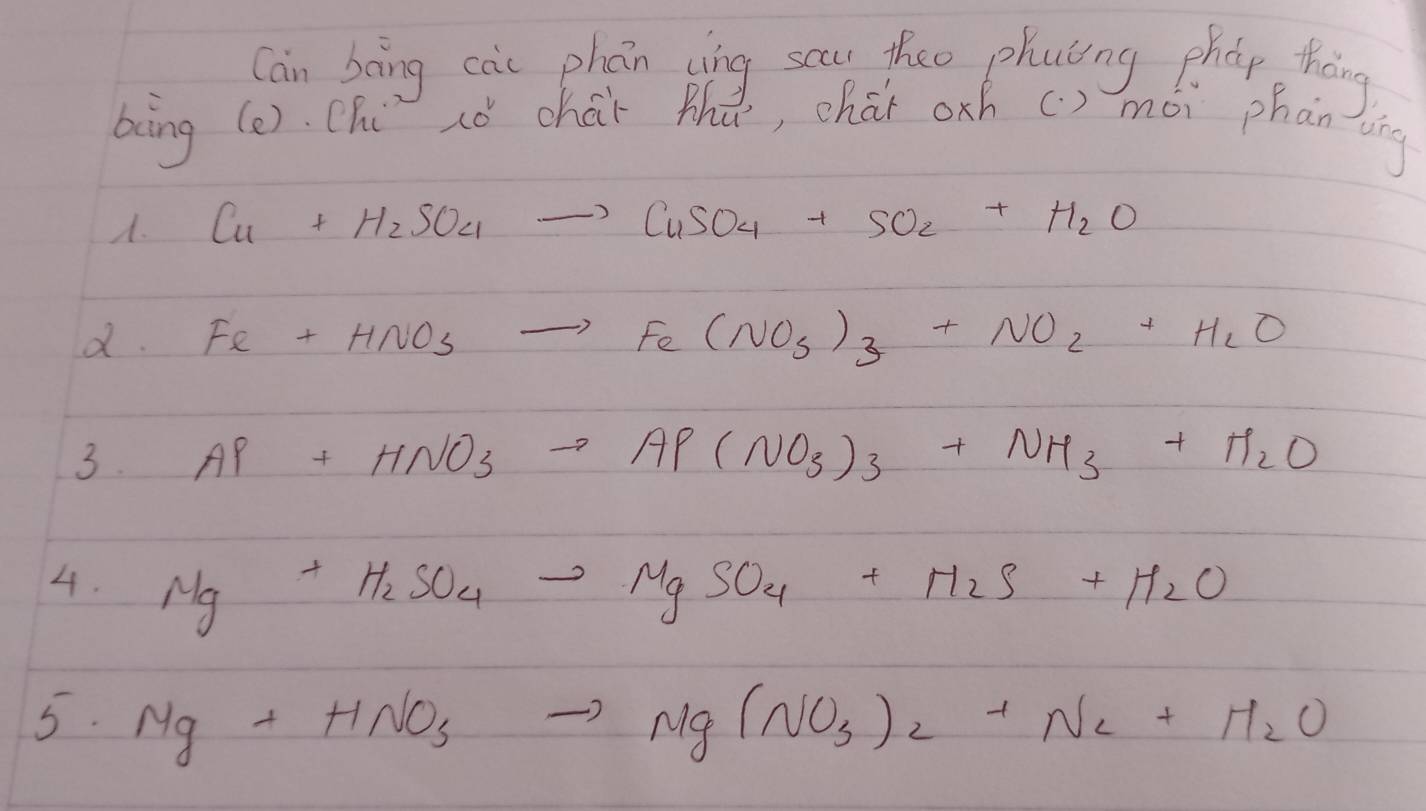 Cân bằng các phản ứng sau theo phương pháp thăng
bằng (e). Chỉ rõ chất khử, chất oxh (.) mỗi phản ứng
1. Cu + H₂SO₄ → CuSO₄ + SO₂ + H₂O
2. Fe + HNO₃ → Fe(NO₃)₃ + NO₂ + H₂O
3. Al + HNO₃ → Al(NO₃)₃ + NH₃ + H₂O
4. Mg + H₂SO₄ → MgSO₄ + H₂S + H₂O
5. Mg + HNO₃ → Mg(NO₃)₂ + N₂ + H₂O